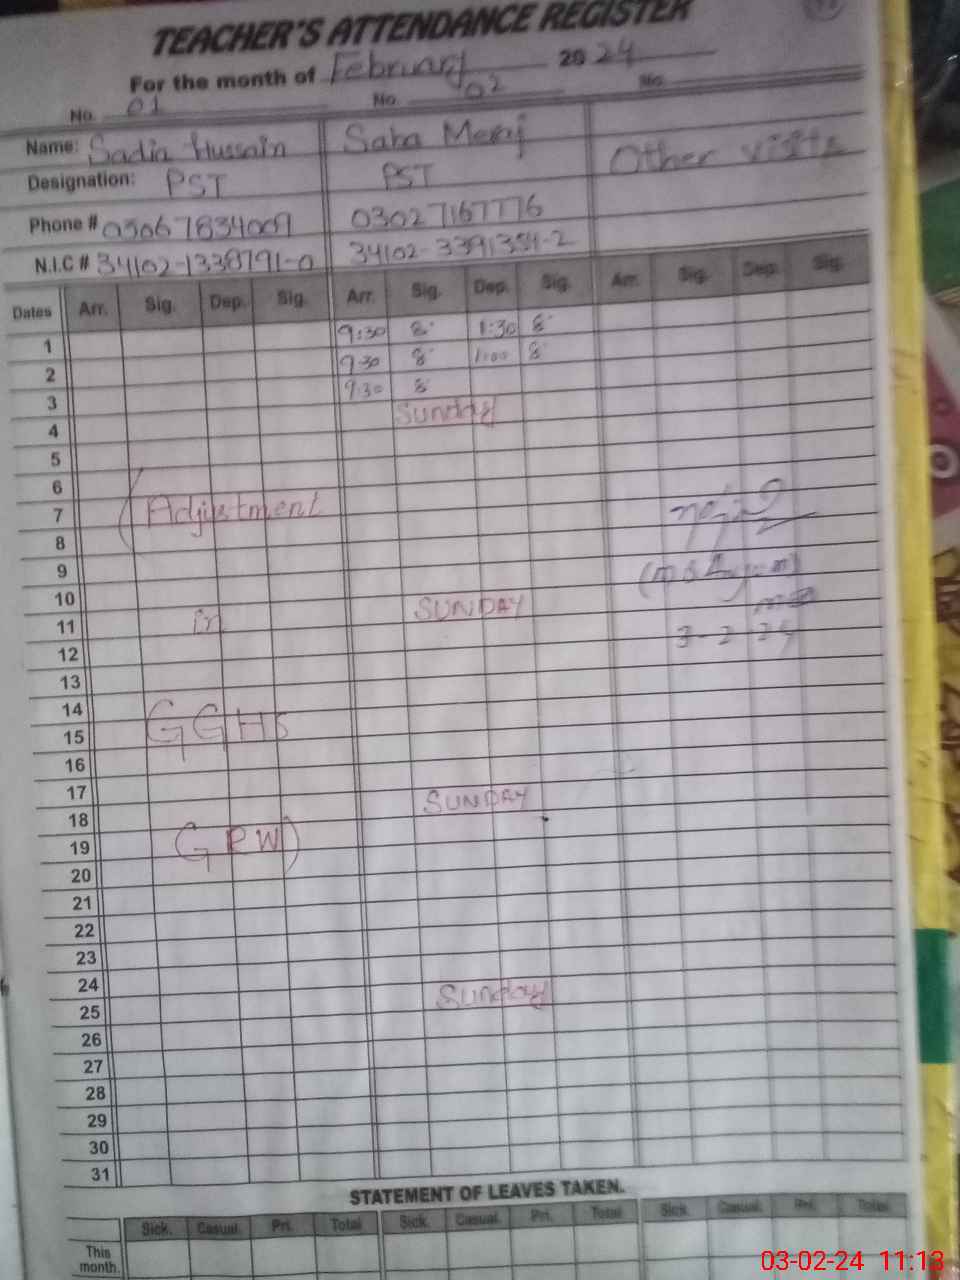 TEACHER'S ATTENDANCE REGISTER
For the month of February 2024
No. 01 No. 02 No.
Name: Sadia Hussain Saba Meraj Other visits
Designation: PST PST
Phone # 03067834009 03027167776
N.I.C # 34102-1338791-0 34102-3391354-2
Dates Arr. Sig. Dep. Sig. Arr. Sig. Dep. Sig. Arr. Sig. Dep. Sig.
1 9:30 8 1:30 8
2 9:30 8 1:00 8
3 9:30 8
4 Sunday
5
6
7 Adjustment
8
9
10
11 in SUNDAY
12 3-2-24
13
14
15 GGHS
16
17
18 SUNDAY
19 GRW)
20
21
22
23
24
25 Sunday
26
27
28
29
30
31
STATEMENT OF LEAVES TAKEN.
Sick. Casual. Pri. Total Sick. Casual. Pri. Total Sick. Casual. Pri. Total
This month.
03-02-24 11:13